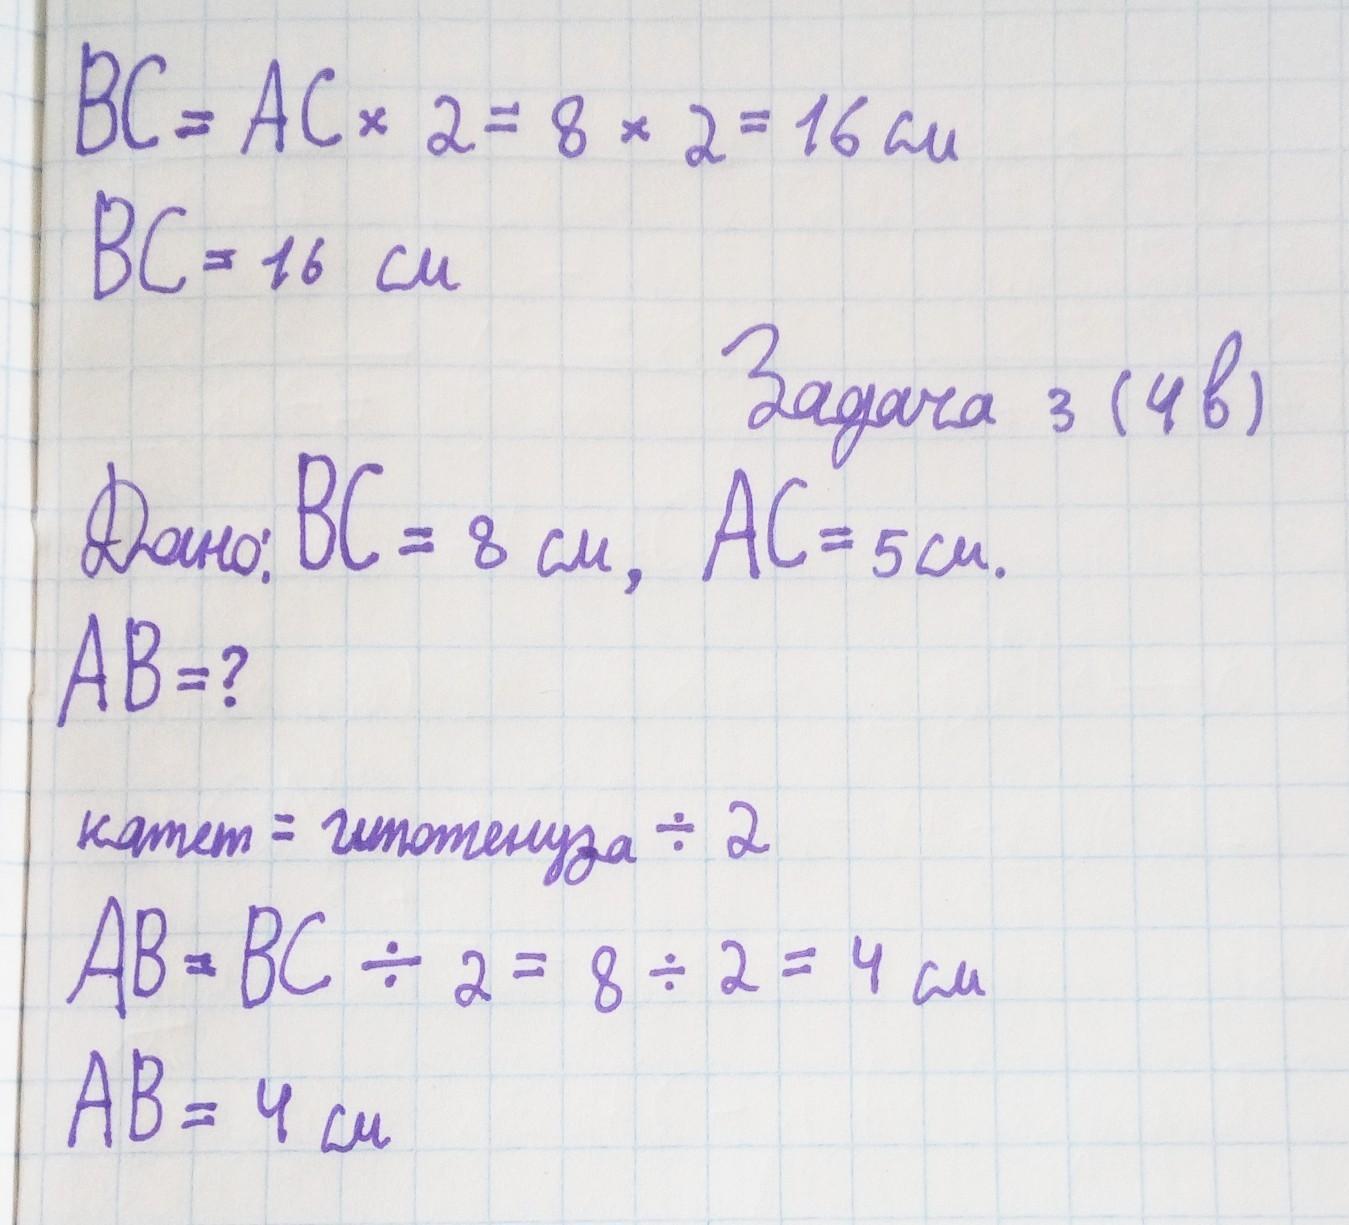 BC = AC × 2 = 8 × 2 = 16 см
BC = 16 см
Задача 3 (4в)
Дано: BC = 8 см, AC = 5 см.
AB = ?
катет = гипотенуза ÷ 2
AB = BC ÷ 2 = 8 ÷ 2 = 4 см
AB = 4 см